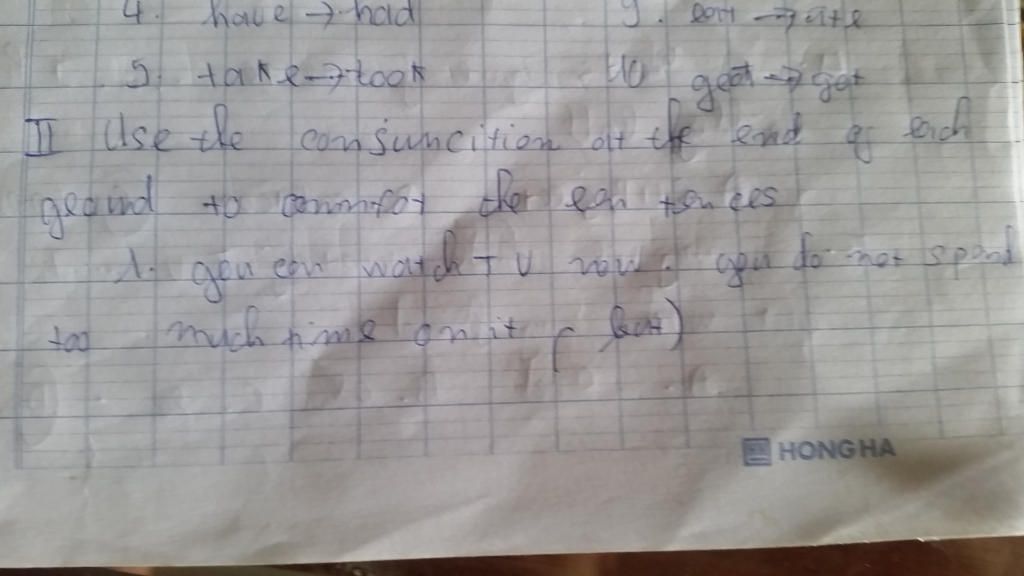 4. have → had 9. eat → ate
5. take → took 10 get → got
II Use the conjuncition at the end of each
to connect the sentences
1. you can watch TV now. you do not spend
too much time on it (but)
HONG HA